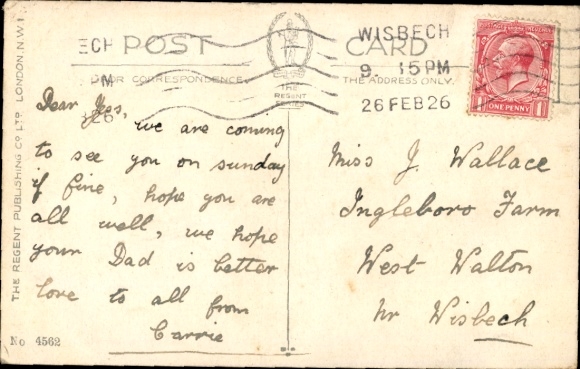 WISBECH
9. 15PM
26 FEB 26
ECH
M
26
POST CARD
FOR CORRESPONDENCE.
THE ADDRESS ONLY.
THE
REGENT
SERIES
POSTAGE REVENUE
1 ONE PENNY 1
THE REGENT PUBLISHING CO LTD LONDON, N.W.1
No 4562
Dear
we are coming
to see you on sunday
if fine, hope you are
all well, we hope
your Dad is better
love to all from
Carrie
Miss J. Wallace
Ingleboro Farm
West Walton
Nr Wisbech